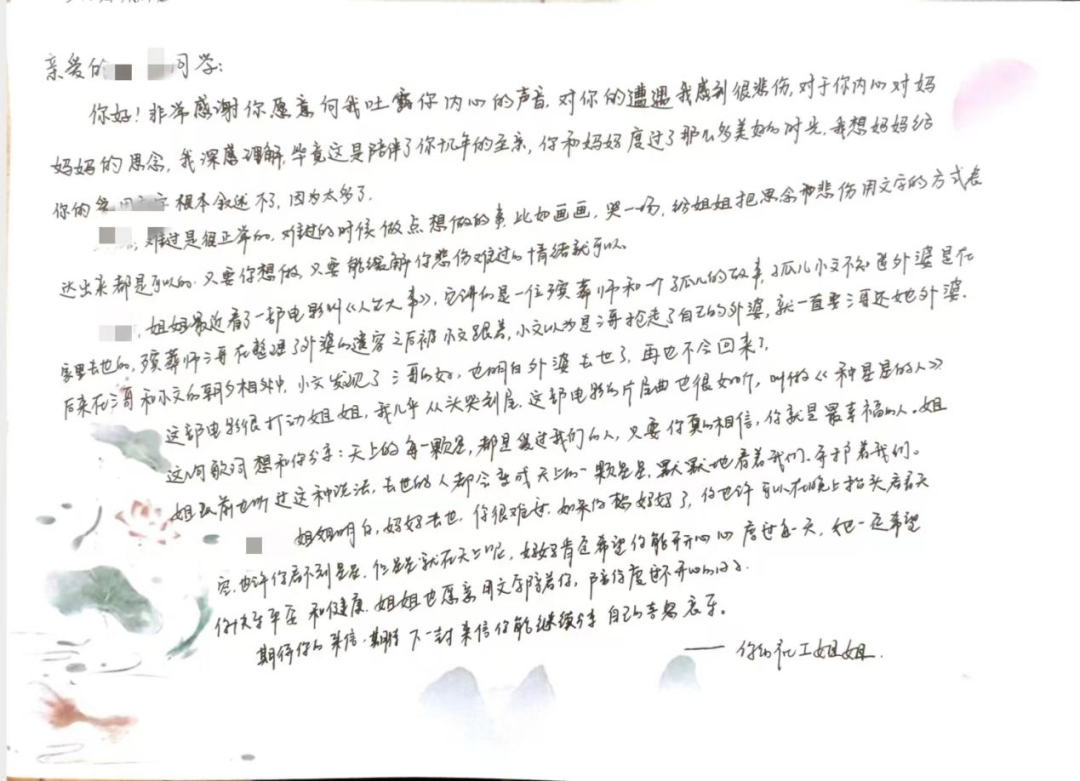 亲爱的 同学:
你好!非常感谢你愿意向我吐露你内心的声音,对你的遭遇我感到很悲伤,对于你内心对妈
妈妈的思念,我深感理解,毕竟这是陪伴了你十几年的至亲,你和妈妈度过了那么多美好的时光,我想妈妈给
你的 根本叙述不了,因为太多了。
难过是很正常的,难过的时候做点想做的事,比如画画,哭一场,给姐姐把思念和悲伤用文字的方式表
达出来都是可以的,只要你想做,只要能缓解你悲伤难过的情绪就可以。
,姐姐最近看了一部电影叫《人生大事》,它讲的是一位殡葬师和一个孤儿的故事,孤儿小文不知道外婆是在
家里去世的,殡葬师三哥在整理了外婆的遗容之后被小文跟着,小文以为是三哥抢走了自己的外婆,就一直要三哥还她外婆。
后来在三哥和小文的朝夕相处中,小文发现了三哥的好,也明白外婆去世了,再也不会回来了。
这部电影很打动姐姐,我几乎从头哭到尾。这部电影的片尾曲也很好听,叫做《种星星的人》
这句歌词想和你分享:天上的每一颗星,都是爱过我们的人,只要你真的相信,你就是最幸福的人。姐
姐以前也听过这种说法,去世的人都会变成天上的一颗星星,默默地看着我们、守护着我们。
姐姐明白,妈妈去世,你很难过,如果你想妈妈了,你也许可以在晚上抬头看看天
空,也许你看不到星星,但星星就在天上呢,妈妈肯定希望你能开开心心度过每一天,她一定希望
你快乐平安和健康,姐姐也愿意用文字陪着你,陪你度过不开心的日子。
期待你的来信,期待下一封来信你能继续分享自己的喜怒哀乐。
——你的社工姐姐.